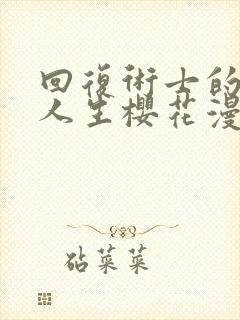 回復術士的
人生櫻花漫
砧菜菜